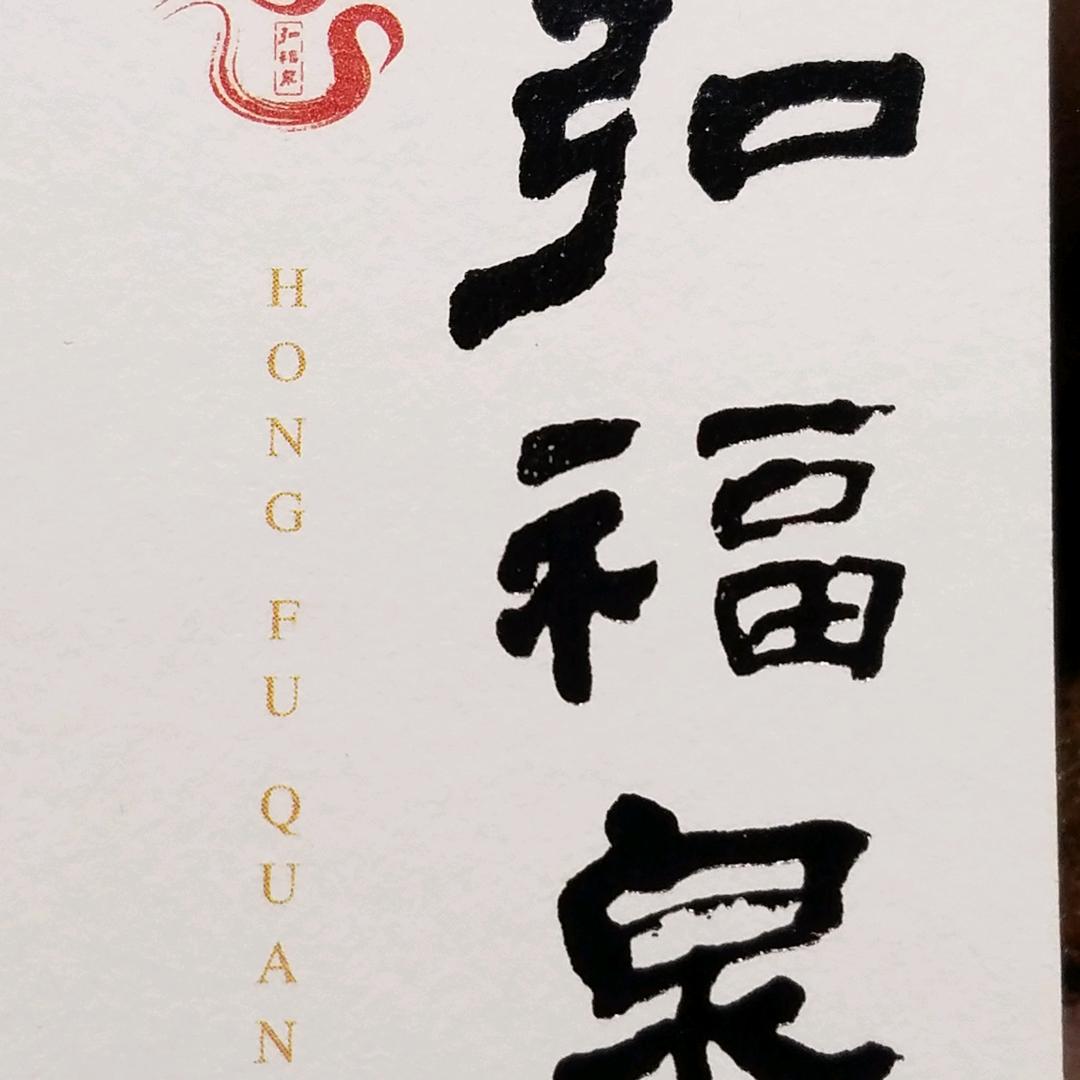 弘福泉
弘福泉
HONG FU QUAN